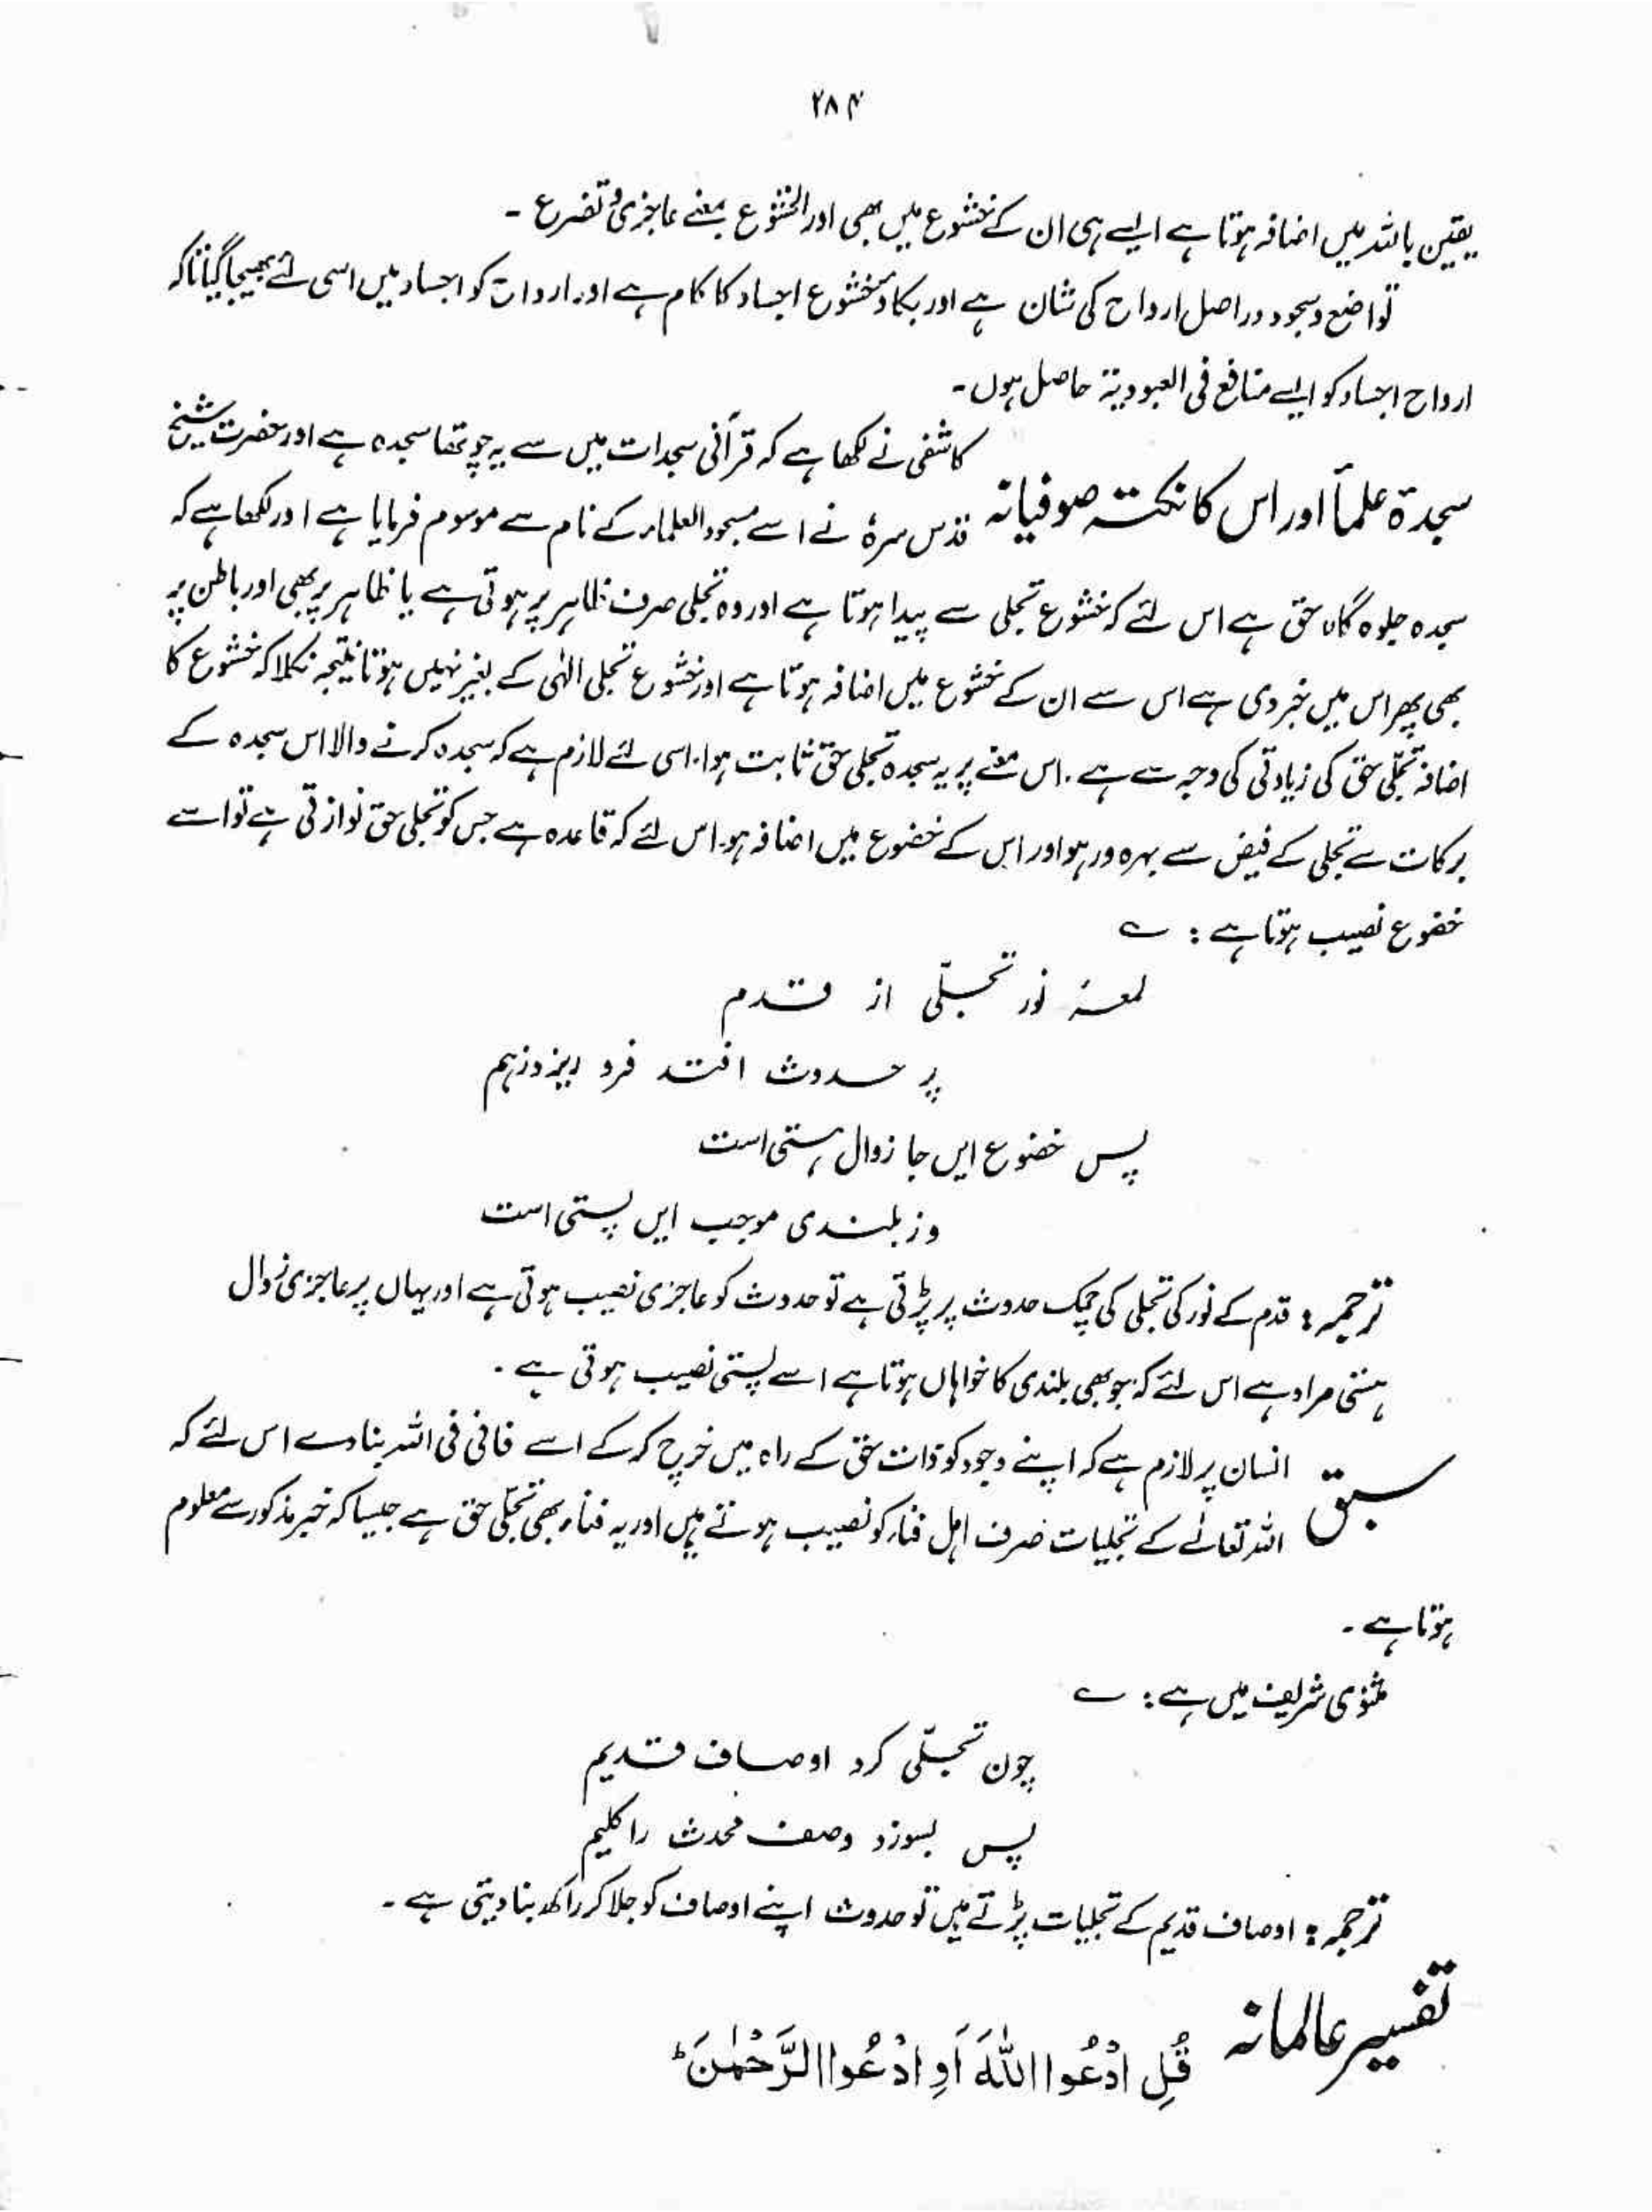 ۲۸۴
یقین باللہ میں اضافہ ہوتا ہے ایسے ہی ان کے خشوع میں بھی اور الخشوع بمعنے عاجزی و تضرع ۔
تواضع و سجود دراصل ارواح کی شان ہے اور بکاء و خشوع اجساد کا کام ہے اور ارواح کو اجساد میں اسی لئے بھیجا گیا تاکہ
ارواح اجساد کو ایسے منافع فی العبودیۃ حاصل ہوں ۔
کاشفی نے لکھا ہے کہ قرآنی سجدات میں سے یہ چوتھا سجدہ ہے اور حضرت شیخ
سجدۃ علمآ اور اس کا نکتہ صوفیانہ
قدس سرہٗ نے اسے سجود العلماء کے نام سے موسوم فرمایا ہے اور لکھا ہے کہ
سجدہ جلوہ گاہ حق ہے اس لئے کہ خشوع تجلی سے پیدا ہوتا ہے اور وہ تجلی صرف ظاہر پر ہوتی ہے یا ظاہر پر بھی اور باطن پر
بھی پھر اس میں خبر دی ہے اس سے ان کے خشوع میں اضافہ ہوتا ہے اور خشوع تجلی الٰہی کے بغیر نہیں ہوتا نتیجہ نکلا کہ خشوع کا
اضافہ تجلّی حق کی زیادتی کی وجہ سے ہے ۔ اس معنے پر یہ سجدہ تجلی حق ثابت ہوا ۔ اسی لئے لازم ہے کہ سجدہ کرنے والا اس سجدہ کے
برکات سے تجلی کے فیض سے بہرہ ور ہو اور اس کے خضوع میں اضافہ ہو ۔ اس لئے کہ قاعدہ ہے جس کو تجلی حق نوازتی ہے تو اسے
خضوع نصیب ہوتا ہے : ؎
لمعۂ نور تجلّی از قدم
پر حدوث افتد فرد ریزد زہم
پس خضوع ایں جا زوال ہستی است
وز بلندی موجب ایں پستی است
ترجمہ : قدم کے نور کی تجلی کی چمک حدوث پر پڑتی ہے تو حدوث کو عاجزی نصیب ہوتی ہے اور یہاں پر عاجزی زوال
ہستی مراد ہے اس لئے کہ جو بھی بلندی کا خواہاں ہوتا ہے اسے پستی نصیب ہوتی ہے ۔
سبق انسان پر لازم ہے کہ اپنے وجود کو ذات حق کے راہ میں خرچ کر کے اسے فانی فی اللہ بنا دے اس لئے کہ
اللہ تعالٰے کے تجلیات صرف اہل فناء کو نصیب ہوتے ہیں اور یہ فناء بھی تجلّی حق ہے جیسا کہ خبر مذکور سے معلوم
ہوتا ہے ۔
مثنوی شریف میں ہے : ؎
چون تجلّی کرد اوصاف قدیم
پس بسوزد وصف محدث را کلیم
ترجمہ : اوصاف قدیم کے تجلیات پڑتے ہیں تو حدوث اپنے اوصاف کو جلا کر راکھ بنا دیتی ہے ۔
تفسیر عالمانہ قُلِ ادْعُوا اللّٰهَ اَوِ ادْعُوا الرَّحْمٰنَ ؕ